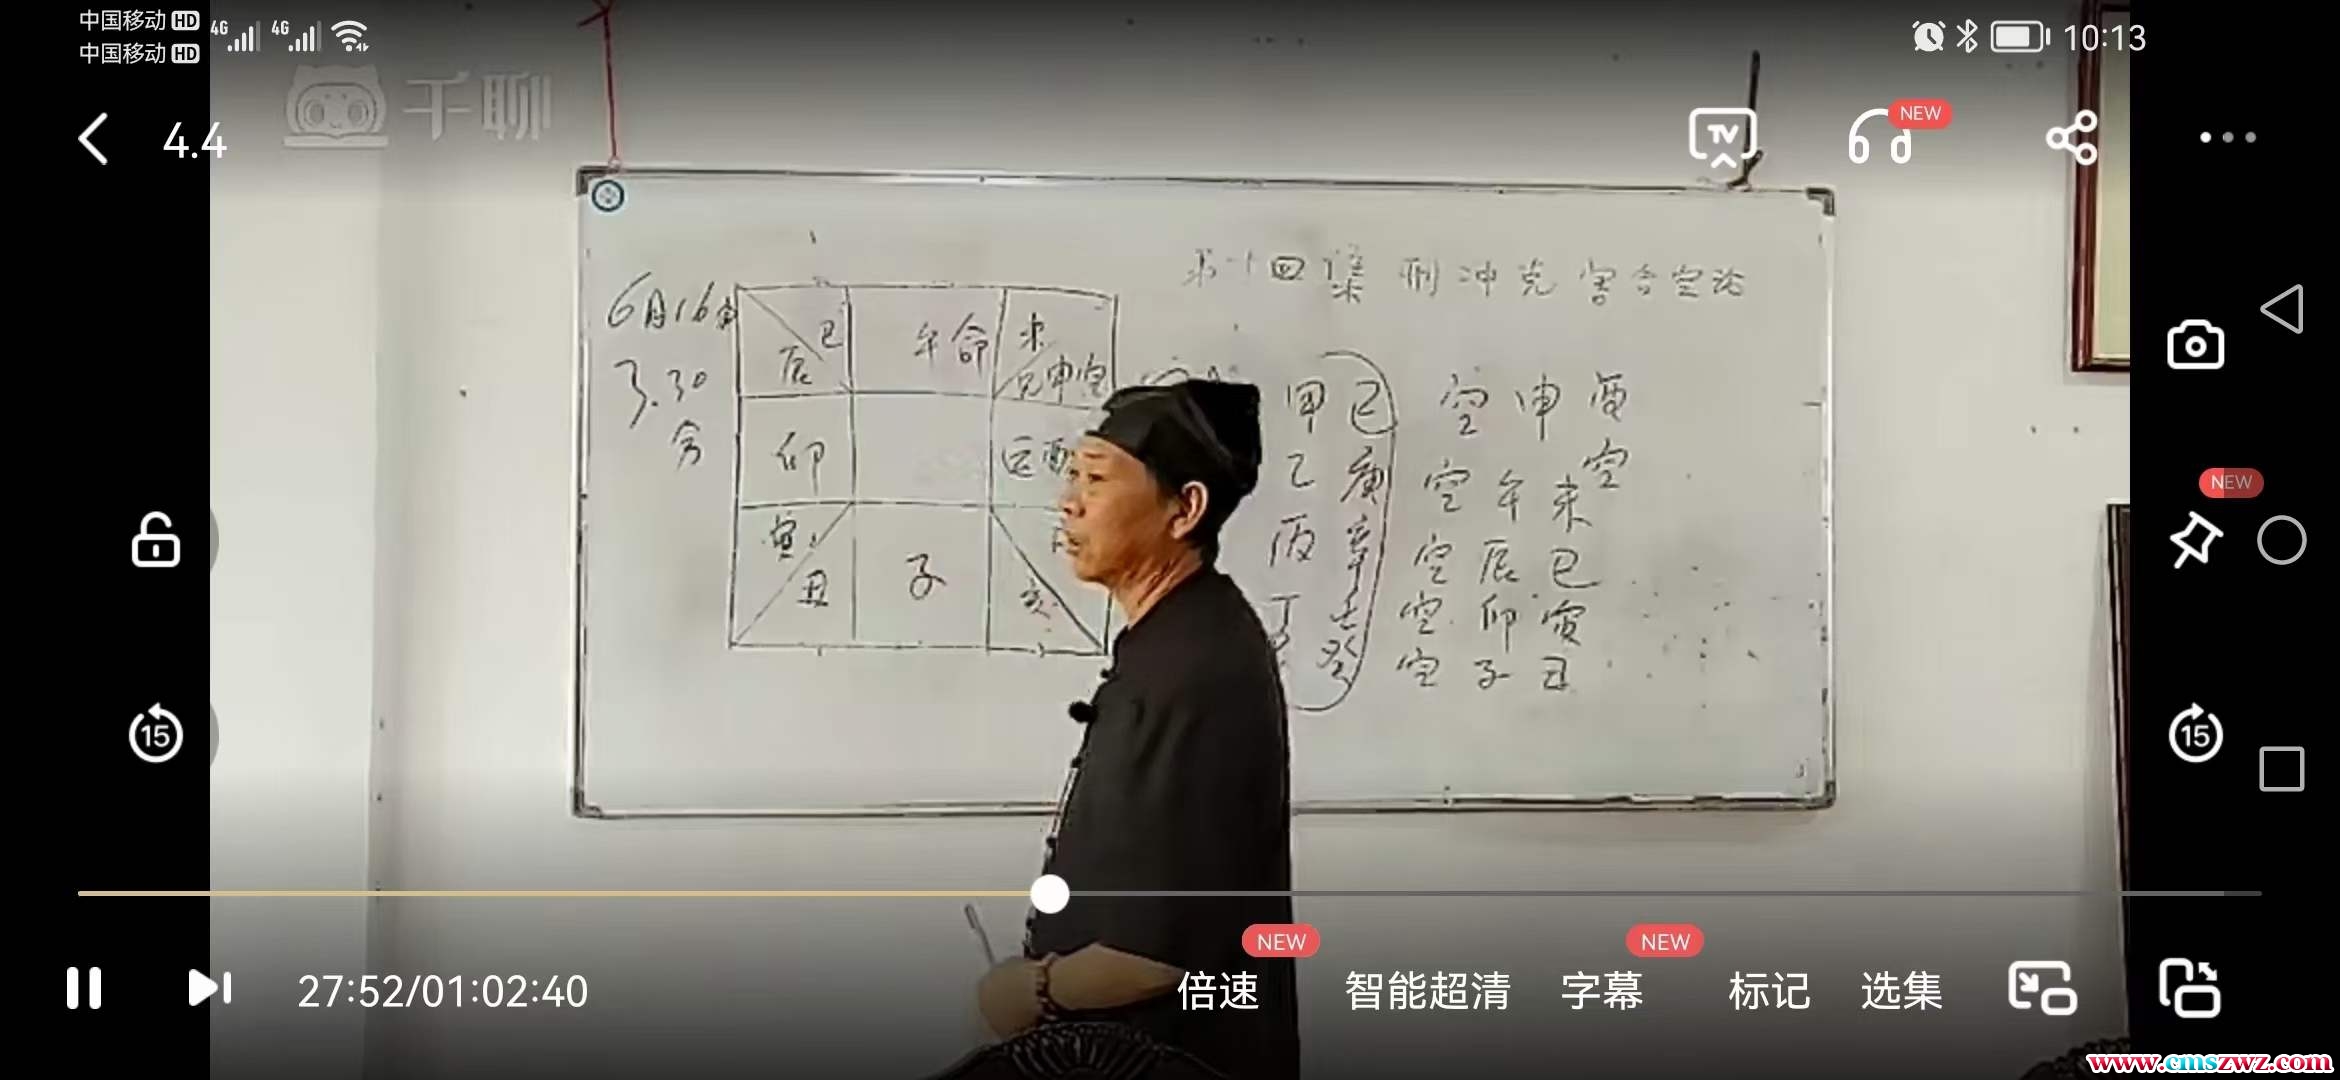 中国移动 HD 4G 4G
中国移动 HD
10:13
千聊
4.4
TV
NEW
第十四集 刑冲克害合空论
6月16
3.30
分
巳
辰
午命
未
兄申空
卯
酉
寅
丑
子
亥
甲己 空申酉
空
乙庚 空午未
丙辛 空辰巳
丁壬 空卯寅
癸 空子丑
NEW
15
15
NEW
NEW
27:52/01:02:40
倍速
智能超清
字幕
标记
选集
www.cmszwz.com